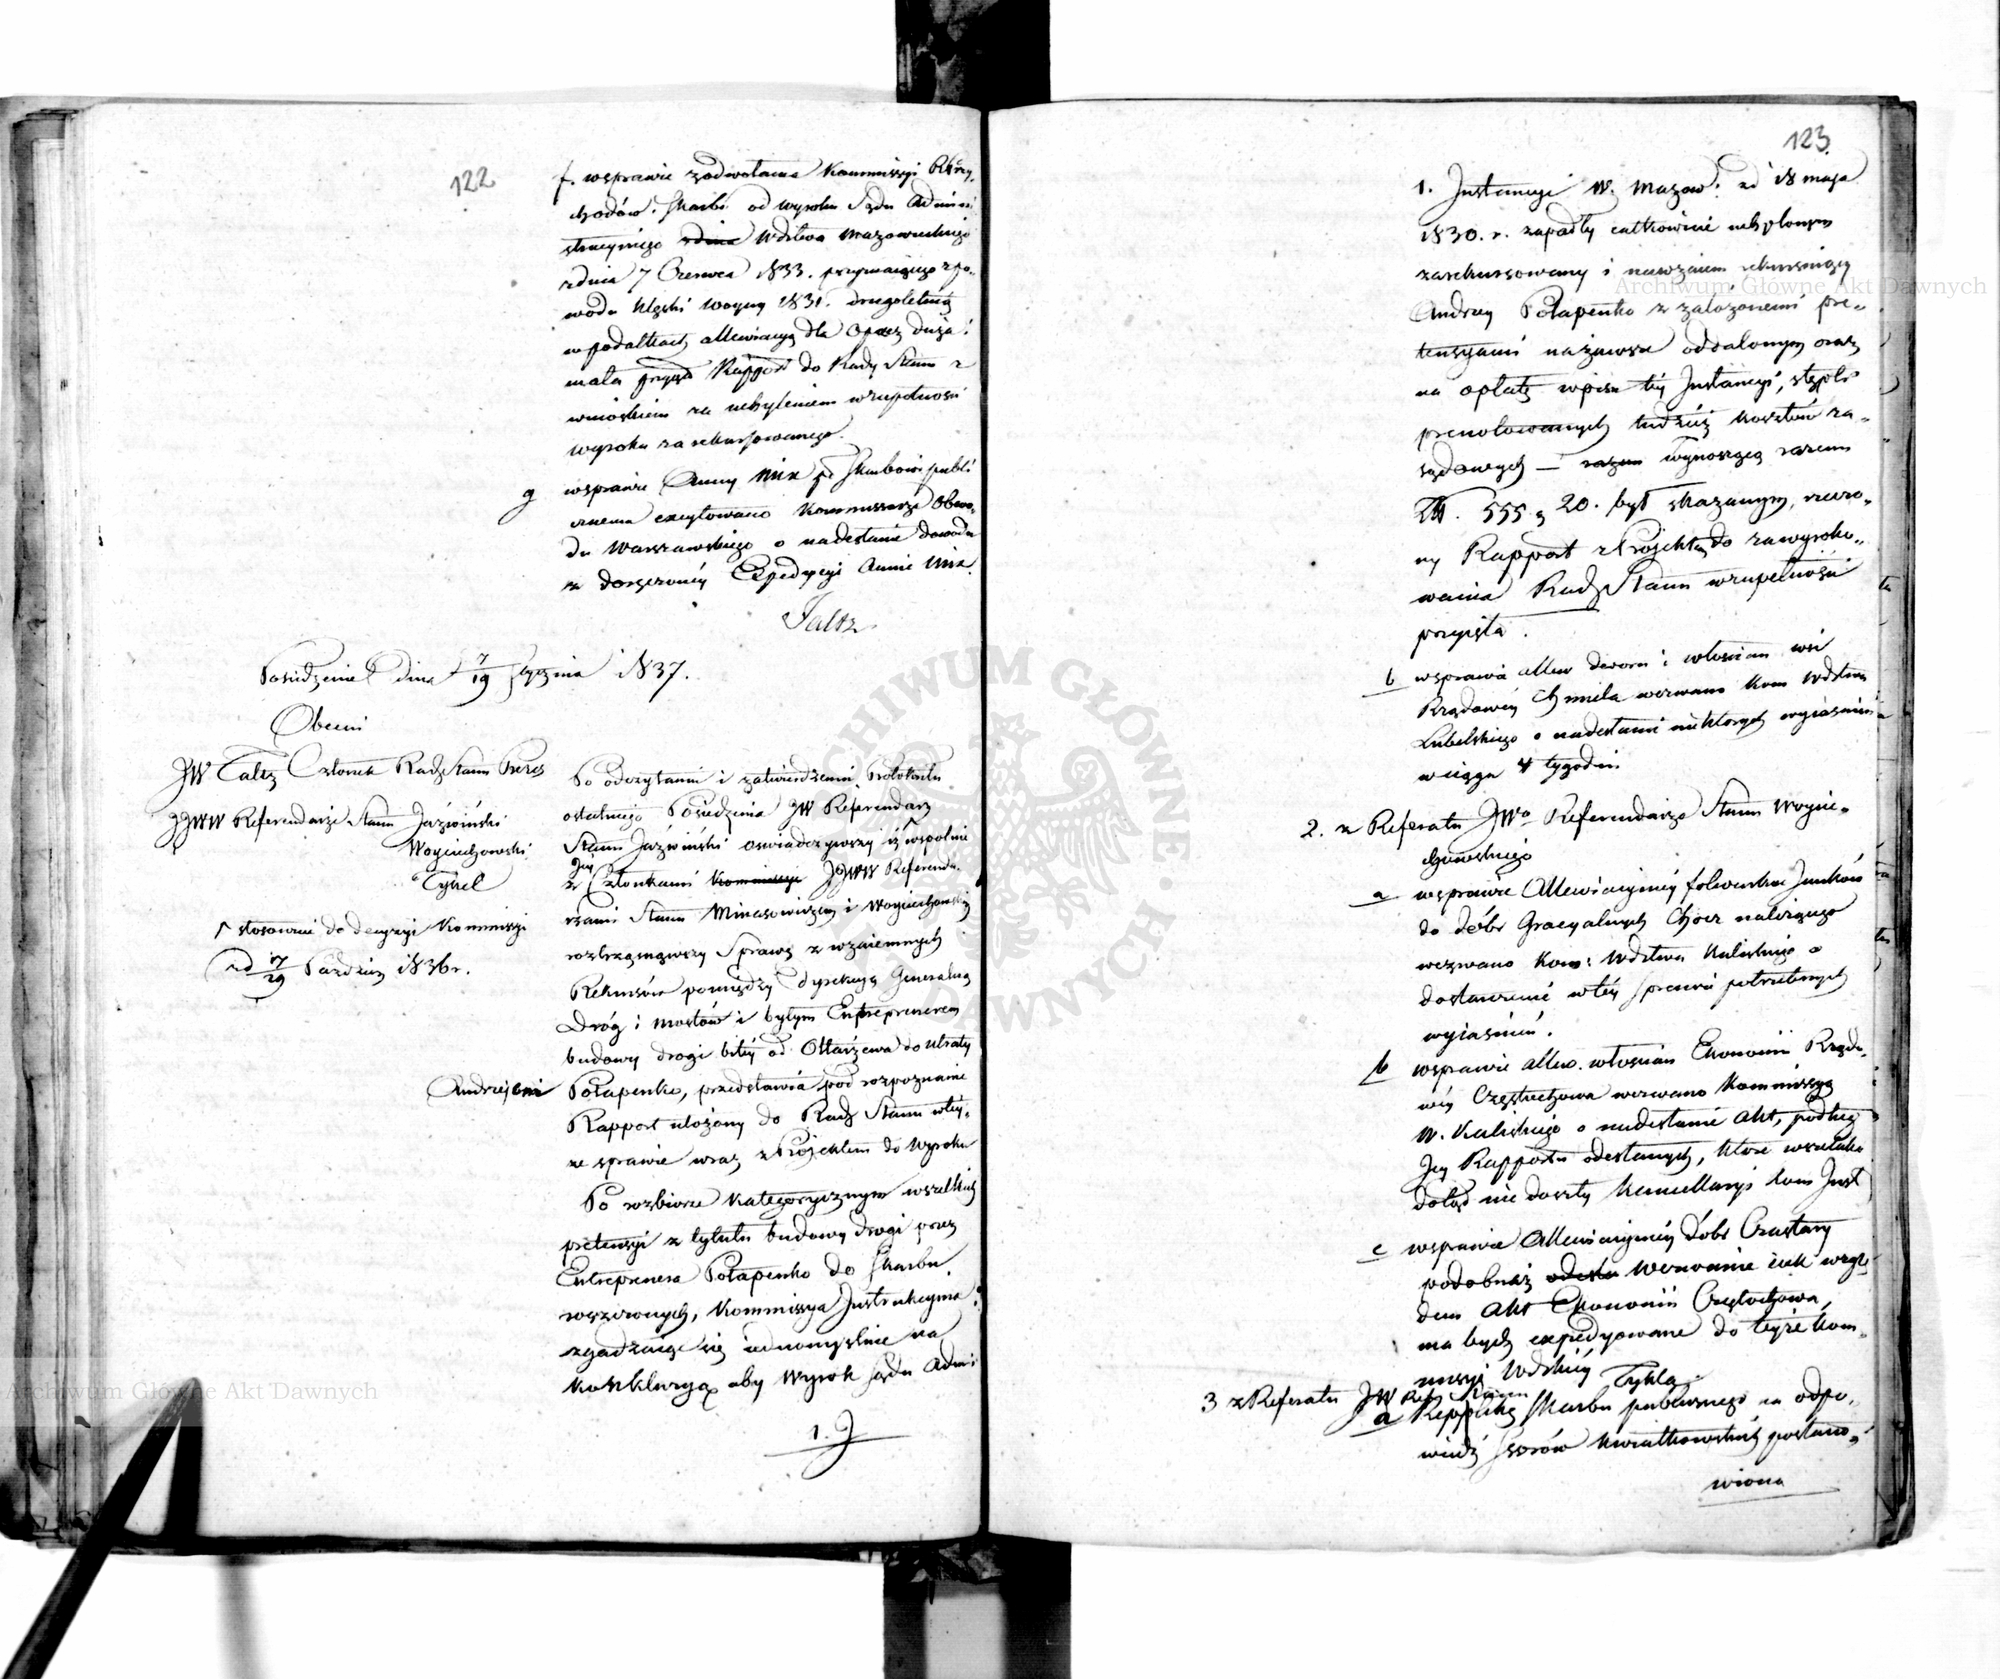 122
f. wsprawie zodwołania Kommissyi Rząd. Przy-
chodów i Skarbu od wyroku Sądu Admini-
stracyjnego zdnia Wdztwa Mazowieckiego
zdnia 7 Czerwca 1833. przyznaiącego z po-
wodu klęski woyny 1831. drugoletnią
w podatkach allewiacyą dla Opacz duża i
mała przyięto Rapport do Rady Stanu z
wnioskiem za uchyleniem wzupełności
wyroku zarekursowanego.
g wsprawie Anny Mix pko Skarbowi publi
cznemu excytowano Kommissarza Obwo-
du Warszawskiego o nadesłanie dowodu
z doręczonéy Expedycyi Annie Mix.
Faltz
Posiedzenie dnia 7/19 Stycznia 1837.
Obecni
JW Faltz Członek Rady Stanu Prezes
JJWW Referendarze Stanu Jaźwiński
Woyciechowski
Tykel
stosownie do decyzyi Kommissyi
z d 17/29 Paździer 1836 r.
Po odczytaniu i zatwierdzeniu Protokułu
ostatniego Posiedzenia JW Referendarz
Stanu Jaźwiński oswiadczywszy iż wspolnie
z Jéy Członkami Kommissyi JJWW Referenda-
rzami Stanu Minasowiczem i Woyciechowskim
roztrząsnąwszy Sprawę z wzaiemnych
Rekursów pomiędzy Dyrekcyą Generalną
Dróg i Mostów i byłym Entreprenerem
budowy drogi bitéy od Ołtarzewa do Utraty
Andrzejem Potapenko, przedstawia pod rozpoznanie
Rapport ułożony do Rady Stanu w téy-
że sprawie wraz z Projektem do Wyroku
Po rozbiorze kategorycznym wszelkich
pretensyi z tytułu budowy drogi przez
Entreprenera Potapenko do Skarbu
wszczonych, Kommissya Instrukcyjna
zgadzaiąc się iednomyslnie na
konkluzyą aby Wyrok Sądu Admi
1. I
123
1. Instancyi W. Mazow: zd 18 maja
1830. r. zapadły całkowicie uchylonym
zarekursowany i nawzaiem rekursuiący
Andrzey Potapenko z założonemi pre-
tensyami nazawsze oddalonym oraz
na opłatę wpisu téy Instancyi, stępli
prenotowanych tudzież kosztów za-
sądowych — razem wynoszącą razem
Zł. 555 g 20. był skazanym, rzeczo-
ny Rapport z Projektem do zawyroko-
wania Rady Stanu wzupełności
przyięła.
b wsprawie allew dworu i włoscian wsi
Rządowéy Chmiela wezwano Kom Wdztwa
Lubelskiego o nadesłanie niektorych wyiaśnień
wciągu 4 tygodni
2. z Referatu JWo Referendarza Stanu Woycie-
chowskiego
a wsprawie Allewiacyinéy folwarku Janków
do dóbr Gracyalnych Chocz należącego
wezwano Kom: Wdztwa Kaliskiego o
dostawienie w téy sprawie potrzebnych
wyiaśnień.
b wsprawie allew. włoscian Ekonomii Rządo-
wéy Częstochowa wezwano Kommissyą
W. Kaliskiego o nadesłanie akt, podług
Jéy Rapportu odesłanych, które wszelako
dotąd nie doszły Kancellaryi Kom Inst
c wsprawie Allewiacyinéy dóbr Czastary
podobnéż odezwa wezwanie iak wzglę-
dem akt Ekonomii Częstochowa,
ma bydź expedyowane do téyże Kom-
missyi Wdzkiéy
3 z Referatu JW Ref Stanu Tykla
a Replikę Skarbu publicznego na odpo-
wiedź Ssorów Kwiatkowskich postano-
wiono
Archiwum Główne Akt Dawnych
Archiwum Główne Akt Dawnych
ARCHIWUM GŁÓWNE AKT DAWNYCH